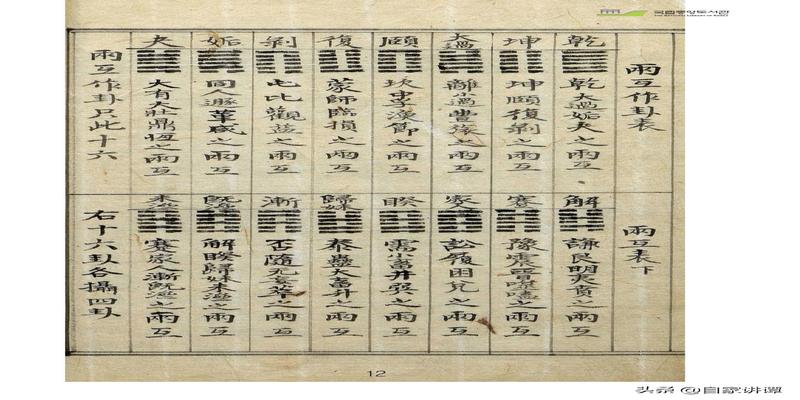 국립중앙도서관
THE NATIONAL LIBRARY OF KOREA
兩互作卦表
乾
乾大過姤夬之兩互
坤
坤頤復剝之兩互
大過
離小過豊旅之兩互
頤
坎中孚渙節之兩互
復
蒙師臨損之兩互
剝
屯比觀益之兩互
姤
同遯革咸之兩互
夬
大有大壯鼎恒之兩互
兩互作卦只此十六
兩互表下
解
謙艮明夷賁之兩互
蹇
豫震晋噬嗑之兩互
家
訟履困兌之兩互
睽
需小畜井巽之兩互
歸妹
泰蠱大畜升之兩互
漸
否隨无妄萃之兩互
既濟
解睽歸妹未濟之兩互
未濟
蹇家漸既濟之兩互
右十六卦各攝四卦
12
头条 @自家讲谭